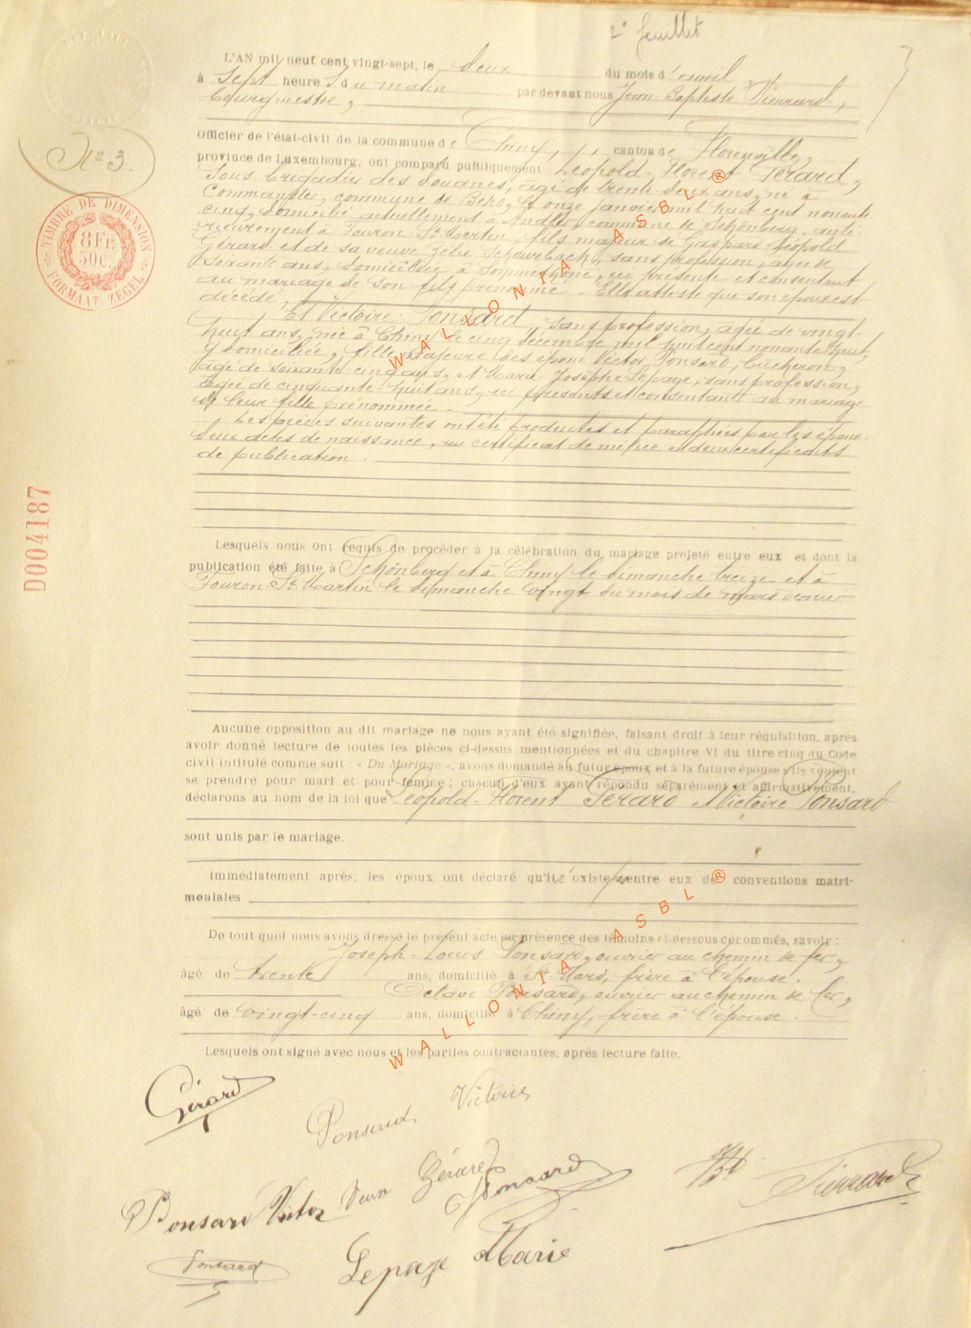 2e feuillet
L'AN mil neuf cent vingt-sept, le deux du mois d'avril,
à sept heures du matin par devant nous Jean Baptiste Pierrard,
Bourgmestre,
Officier de l'état-civil de la commune de Chiny, canton de Florenville,
province de Luxembourg, ont comparu publiquement Léopold-Florent Gérard,
N° 3.
sous brigadier des douanes, âgé de trente deux ans, né à
Commanster, commune de Beho, le onze janvier mil huit cent nonante
cinq, domicilié actuellement à Andler, commune de Schönberg, anté-
rieurement à Fouron-St-Martin, fils majeur de Gaspard-Léopold
Gérard et de sa veuve Zélie sans profession, âgée de
soixante ans, domiciliée à ici présente et consentant
au mariage de son fils prénommé. Elle atteste que son époux est
décédé.
TIMBRE DE DIMENSION
8 Fr.
50c.
FORMAAT ZEGEL
Et Victoire Ponsard, sans profession, âgée de vingt-
huit ans, née à Chiny le cinq décembre mil huit cent nonante huit,
y domiciliée, fille majeure des époux Victor Ponsard, bûcheron,
âgé de soixante cinq ans, et Marie Josèphe Lepage, sans profession,
âgée de cinquante-huit ans, ici présents et consentant au mariage
de leur fille prénommée.
Les pièces suivantes ont été produites et paraphées par les époux:
deux actes de naissance, un certificat de milice et deux certificats
de publication.
D004187
Lesquels nous ont requis de procéder à la célébration du mariage projeté entre eux et dont la
publication été faite à Schönberg et à Chiny le dimanche treize et à
Fouron-St-Martin le dimanche vingt du mois de mars dernier
Aucune opposition au dit mariage ne nous ayant été signifiée, faisant droit à leur réquisition, après
avoir donné lecture de toutes les pièces ci-dessus mentionnées et du chapitre VI du titre cinq du Code
civil intitulé comme suit : « Du Mariage », avons demandé au futur époux et à la future épouse s'ils veulent
se prendre pour mari et pour femme ; chacun d'eux ayant répondu séparément et affirmativement,
déclarons au nom de la loi que Léopold-Florent Gérard et Victoire Ponsard
sont unis par le mariage.
Immédiatement après, les époux ont déclaré qu'il n'existe pas entre eux de conventions matri-
moniales
De tout quoi nous avons dressé le présent acte en présence des témoins ci-dessous dénommés, savoir :
Joseph-Louis Ponsard, ouvrier au chemin de fer,
âgé de trente ans, domicilié à St-Mard, frère à l'épouse.
Octave Ponsard, ouvrier au chemin de fer,
âgé de vingt-cinq ans, domicilié à Chiny, frère à l'épouse.
Lesquels ont signé avec nous et les parties contractantes, après lecture faite.
Gérard
Ponsard Victoire
Ponsard Victor Veuve Gérard Ponsard
Pierrard
Ponsard
Lepage Marie
WALLONIA ASBL ®
WALLONIA ASBL ®